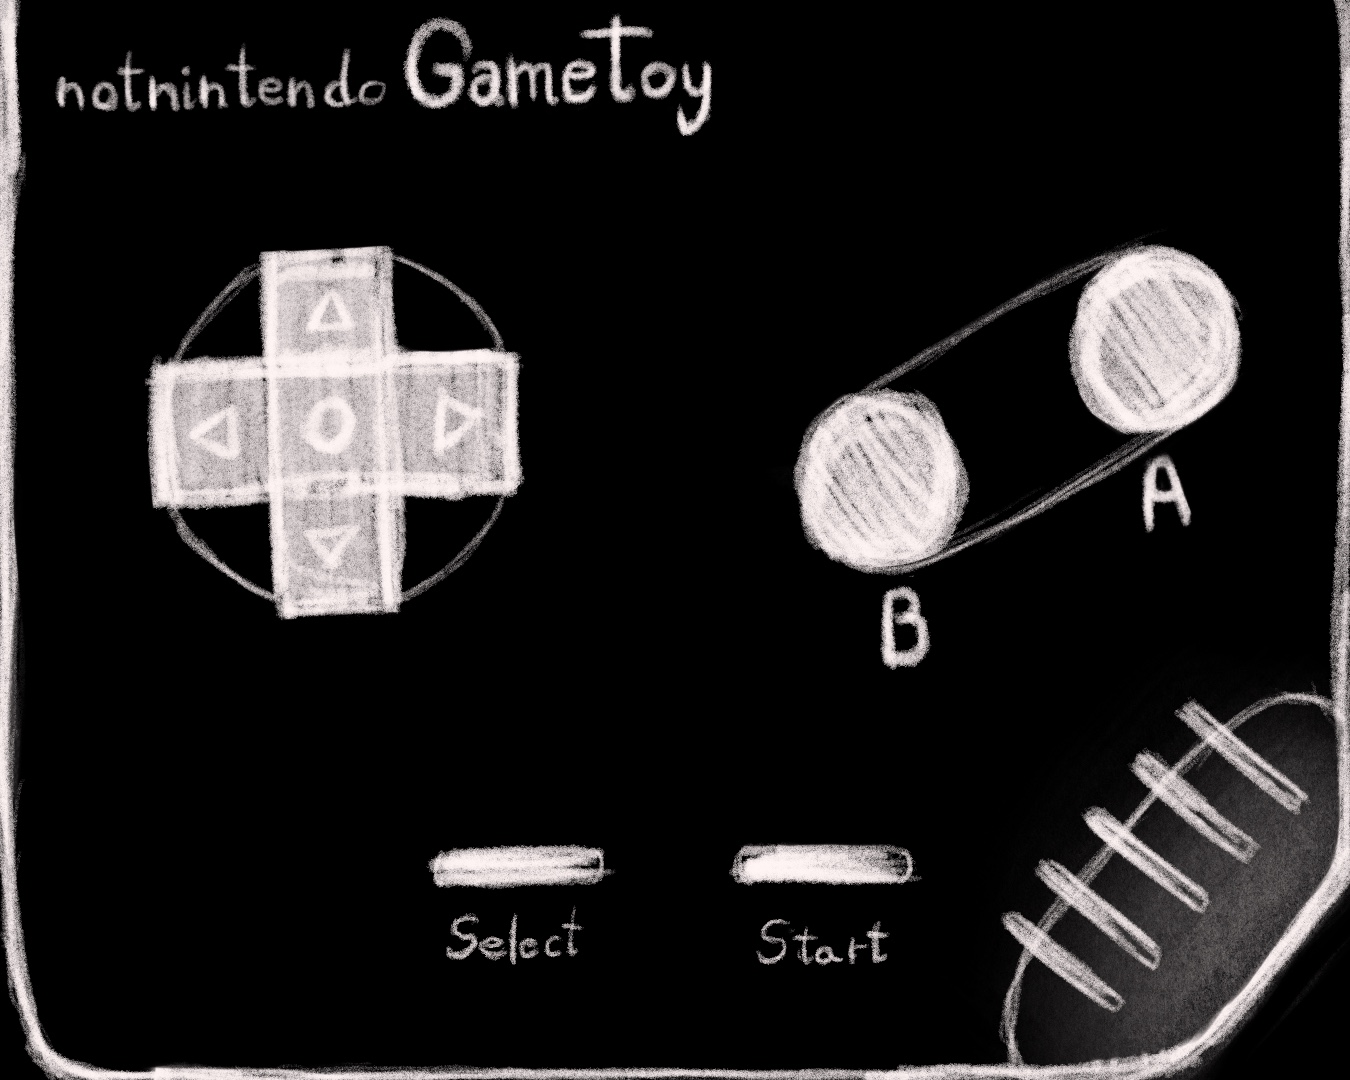 notnintendo GameToy
A
B
Select Start